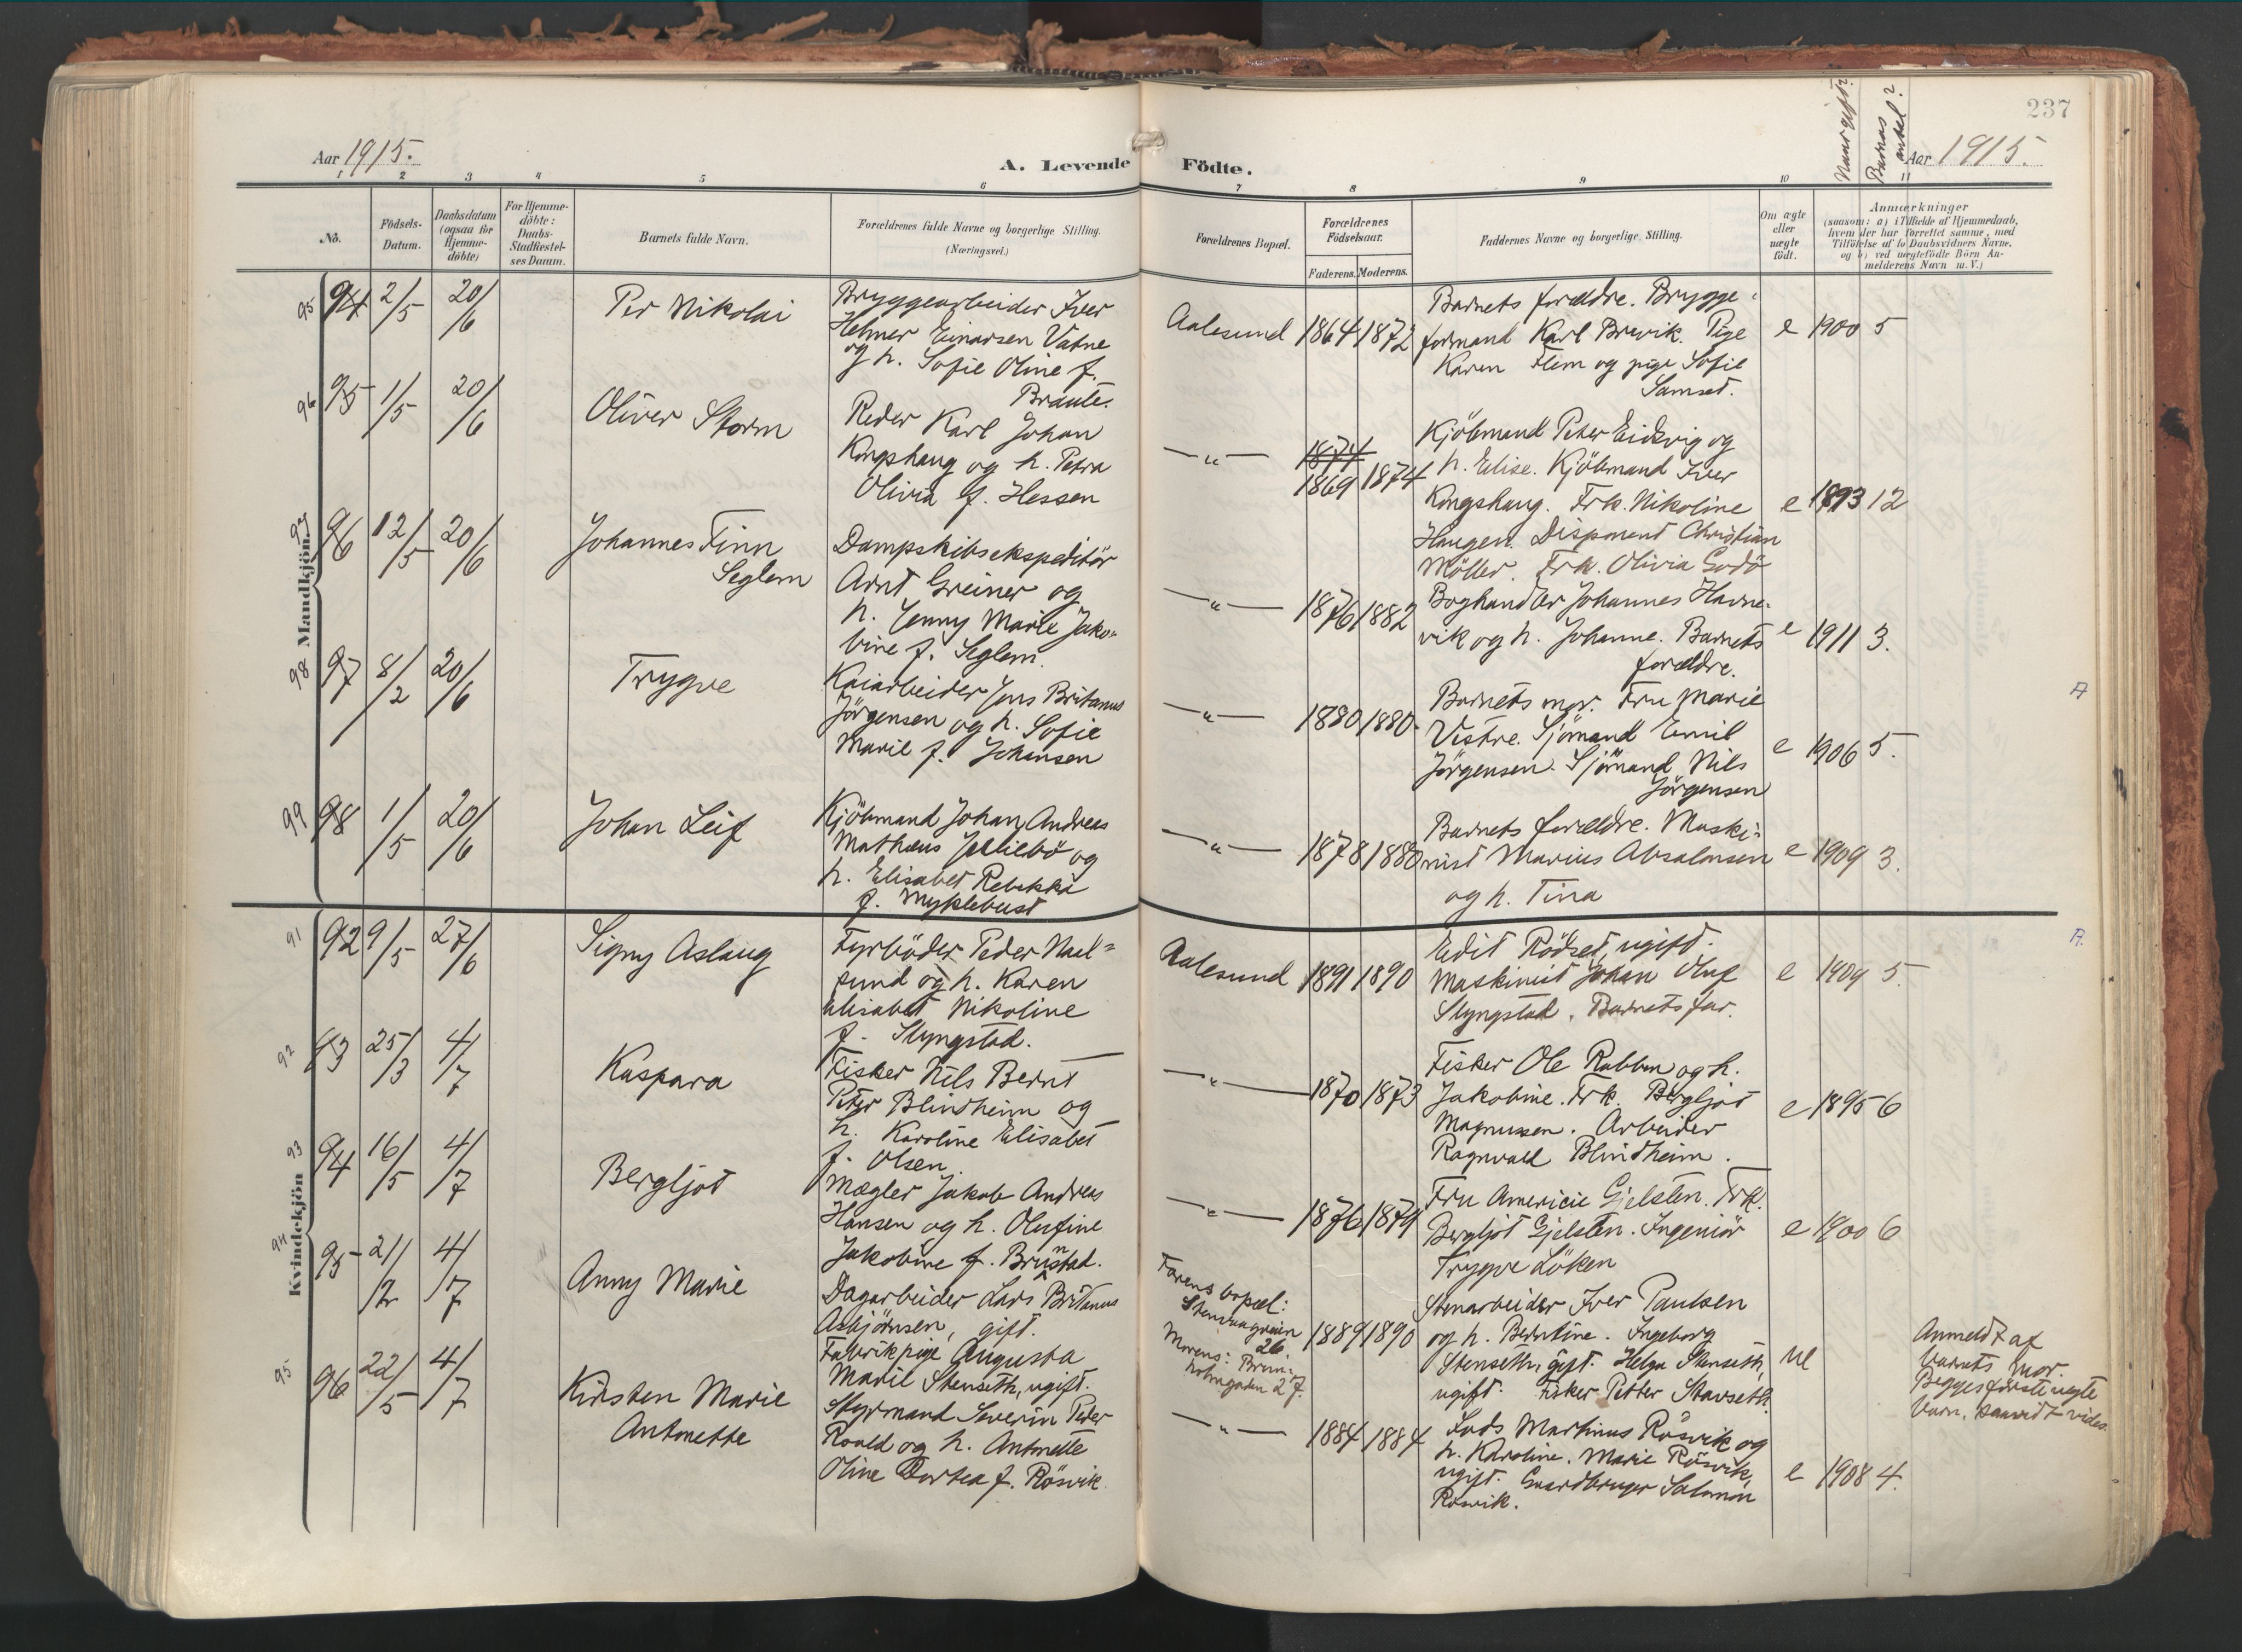 Aar 1915.
A. Levende
Födte.
237
Naar gift?
Barnas antal?
Aar 1915.
1 2 3 4 5 6
7 8 9 10 11
No.
Födsels-Datum.
Daabsdatum (ogsaa for Hjemme-döbte)
For Hjemme-döbte: Daabs-Stadfestel-ses Datum.
Barnets fulde Navn.
Forældrenes fulde Navne og borgerlige Stilling.
(Næringsvei.)
Forældrenes Bopæl.
Forældrenes Födselsaar.
Faderens. Moderens.
Faddernes Navne og borgerlige Stilling.
Om ægte eller uægte födt.
Anmærkninger
(saasom: a) i Tilfælde af Hjemmedaab,
hvem der har forrettet samme, med
Tilföielse af to Daabsvidners Navne,
og b) ved uægtefödte Börn An-
melderens Navn m.V.)
Mandkjön
95 94 2/5 20/6
Per Nikolai
Bryggearbeider Iver
Helmer Einarsen Vatne
og h. Sofie Oline f.
Braute.
Aalesund 1864 1872
Barnets forældre. Brygge-
formand Karl Brevik. Pige
Karen Flem og pige Sofie
Samset.
e 1900 5
96 95 1/5 20/6
Oliver Storm
Reder Karl Johan
Kongshaug og h. Petra
Olivia f. Hessen
—"— 1874
1869 1874
Kjöbmand Peter Eidsvig og
h. Elise. Kjöbmand Iver
Kongshaug. Frk. Nikoline
Haugen. Disponent Christian
Möller. Frk. Olivia Godö
e 1893 12
97 96 12/5 20/6
Johannes Finn
Seglem
Dampskibsekspeditör
Arnt Greiner og
h. Jenny Marie Jako-
bine f. Seglem.
—"— 1876 1882
Boghandler Johannes Havne-
vik og h. Johanne. Barnets
forældre.
e 1911 3.
98 97 8/2 20/6
Trygve
Kaiarbeider Jens Britanus
Jörgensen og h. Sofie
Marie f. Johansen
—"— 1880 1880.
Barnets mor. Fru Marie
Vestre. Sjömand Emil
Jörgensen. Sjömand Nils
Jörgensen
e 1906 5.
A
99 98 1/5 20/6
Johan Leif
Kjöbmand Johan Andreas
Mathæus og
h. Elisabet Rebekka
f. Myklebust
—"— 1878 1880
Barnets forældre. Maski-
nist Marius Absalonsen
og h. Tina
e 1909 3.
Kvindekjön
91 92 9/5 27/6
Signy Aslaug
Fyrböder Peder Nael-
sund og h. Karen
Elisabet Nikoline
f. Slyngstad.
Aalesund 1891 1890
Edit Rödset, ugift.
Maskinist Johan Oluf
Slyngstad. Barnets far.
e 1909 5.
A.
92 93 25/3 4/7
Kaspara
Fisker Nils Bernt
Peter Blindheim og
h. Karoline Elisabet
f. Olsen.
—"— 1870 1873
Fisker Ole Rabben og h.
Jakobine. Frk. Bergljot
Magnussen. Arbeider
Ragnvald Blindheim.
e 1895 6
93 94 16/5 4/7
Bergljot
Mægler Jakob Andreas
Hansen og h. Olufine
Jakobine f. Brunstad.
—"— 1876 1879
Fru Americie Gjelsten. Frk.
Bergljot Gjelsten. Ingeniör
Trygve Löken
e 1900 6
94 95 21/2 4/7
Anny Marie
Dagarbeider Lars Britanus
Asbjörnsen, gift.
Fabrikpige Augusta
Marie Stenseth, ugift.
Farens bopæl:
26.
Morens: Brun-
holmgaden 27.
1889 1890
Stenarbeider Iver Paulsen
og h. Berntine. Ingeborg
Stenseth, gift. Helga Stenseth,
ugift. Fisker Petter Stavseth.
ue
Anmeldt af
barnets mor.
Begges förste uegte
barn, saavidt vides.
95 96 22/5 4/7
Kirsten Marie
Antonette
Styrmand Severin Peder
Roald og h. Antonette
Oline Dortea f. Rösvik
—"— 1884 1884
Lods Martinus Rösvik og
h. Karoline. Marie Rösvik,
ugift. Gaardbruger Salomon
Rösvik.
e 1908 4.